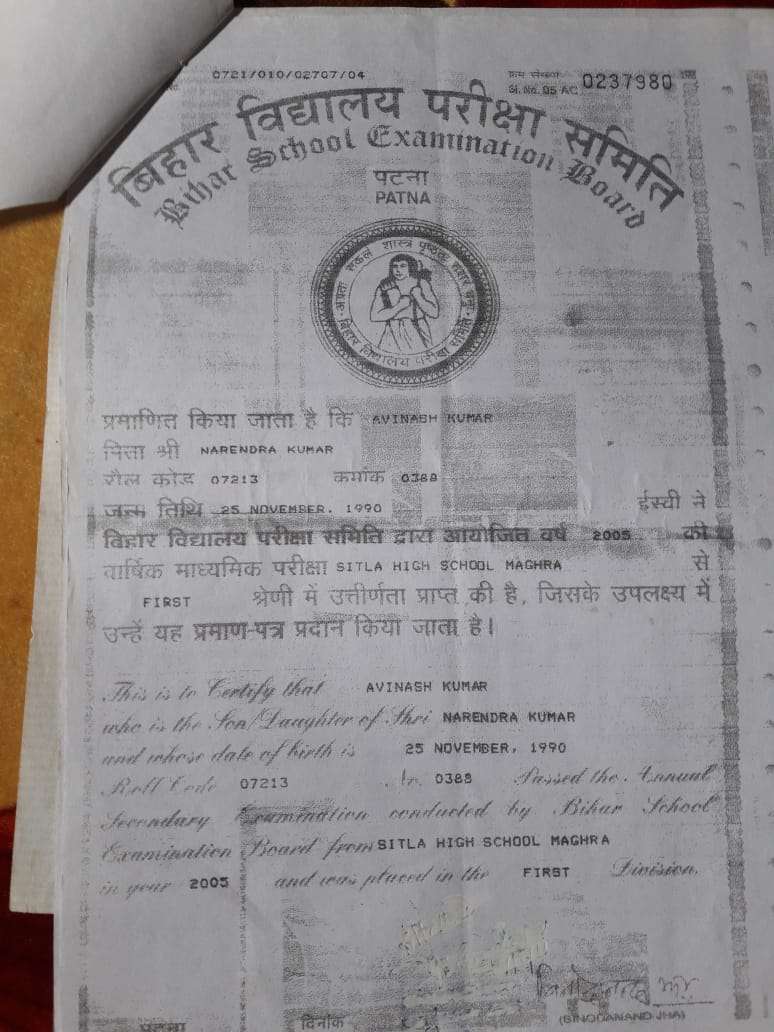 0721/010/02707/04
क्रम संख्या
Sl. No. 05 AC 0237980
बिहार विद्यालय परीक्षा समिति
Bihar School Examination Board
पटना
PATNA
बिहार विद्यालय परीक्षा समिति
प्रमाणित किया जाता है कि AVINASH KUMAR
पिता श्री NARENDRA KUMAR
रौल कोड 07213 क्रमांक 0388
जन्म तिथि 25 NOVEMBER, 1990 ईस्वी ने
बिहार विद्यालय परीक्षा समिति द्वारा आयोजित वर्ष 2005 की
वार्षिक माध्यमिक परीक्षा SITLA HIGH SCHOOL MAGHRA से
FIRST श्रेणी में उत्तीर्णता प्राप्त की है, जिसके उपलक्ष्य में
उन्हें यह प्रमाण-पत्र प्रदान किया जाता है।
This is to Certify that AVINASH KUMAR
who is the Son/Daughter of Shri NARENDRA KUMAR
and whose date of birth is 25 NOVEMBER, 1990
Roll Code 07213 0388 Passed the Annual
Secondary Examination conducted by Bihar School
Examination Board from SITLA HIGH SCHOOL MAGHRA
in year 2005 and was placed in the FIRST Division.
पटना दिनांक (BINODANAND JHA)